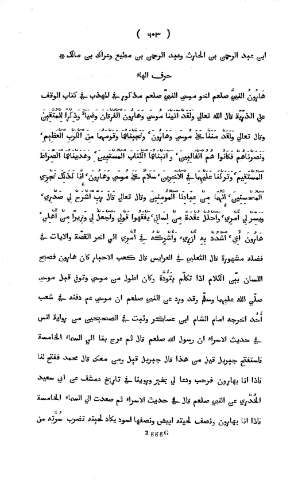 ( ٦٠٣ )
ابى عبد الرحمٰن بن الحارث وعبد الرحمٰن بن مطيع وعراك بن مالك ⁂
حرف الهاء
هارُونُ النبىّ صلعم اخو موسى النبىّ صلعم مذكور فى المهذب فى كتاب الوقف
على الشهلا قال الله تعالى وَلَقَدْ آتَيْنَا مُوسَى وَهَارُونَ الْفُرْقَانَ وَضِيَاءً وَذِكْرًا لِلْمُتَّقِينَ
وقال تعالى وَلَقَدْ مَنَنَّا عَلَى مُوسَى وَهَارُونَ وَنَجَّيْنَاهُمَا وَقَوْمَهُمَا مِنَ الْكَرْبِ الْعَظِيمِ
وَنَصَرْنَاهُمْ فَكَانُوا هُمُ الْغَالِبِينَ وَآتَيْنَاهُمَا الْكِتَابَ الْمُسْتَبِينَ وَهَدَيْنَاهُمَا الصِّرَاطَ
الْمُسْتَقِيمَ وَتَرَكْنَا عَلَيْهِمَا فِى الْآخِرِينَ سَلَامٌ عَلَى مُوسَى وَهَارُونَ إِنَّا كَذَلِكَ نَجْزِى
الْمُحْسِنِينَ إِنَّهُمَا مِنْ عِبَادِنَا الْمُؤْمِنِينَ وقال تعالى قَالَ رَبِّ اشْرَحْ لِى صَدْرِى
وَيَسِّرْ لِى أَمْرِى وَاحْلُلْ عُقْدَةً مِنْ لِسَانِى يَفْقَهُوا قَوْلِى وَاجْعَلْ لِى وَزِيرًا مِنْ أَهْلِى
هَارُونَ أَخِى اشْدُدْ بِهِ أَزْرِى وَأَشْرِكْهُ فِى أَمْرِى الى اخر القصّة والايات فى
فضله مشهورة قال الثعلبى فى العرايس قال كعب الاحبار كان هارون فصيح
اللسان بيّن الكلام اذا تكلم بتُؤَدة وكان اطول من موسى وتوفى قبل موسى
صلّى الله عليهما وسلّم وقد ورد عن النبى صلعم ان موسى عم دفنه فى شعب
أُحُد اخرجه امام الشام ابن عساكر وثبت فى الصحيحين من رواية انس
فى حديث الاسراء ان رسول الله صلعم قال ثم عرج بنا الى السماء الخامسة
فاستفتح جبريل قيل من هذا قال جبريل قيل ومن معك قال محمد ففتح لنا
فاذا انا بهارون فرحب ودعا لى بخير وروينا فى تاريخ دمشق عن ابى سعيد
الخُدْرى عن النبى صلعم قال فى حديث الاسراء ثم صعدت الى السماء الخامسة
فاذا انا بهارون ونصف لحيته ابيض ونصفها اسود يكاد لحيته تضرب سُرَّته من
2 gggg